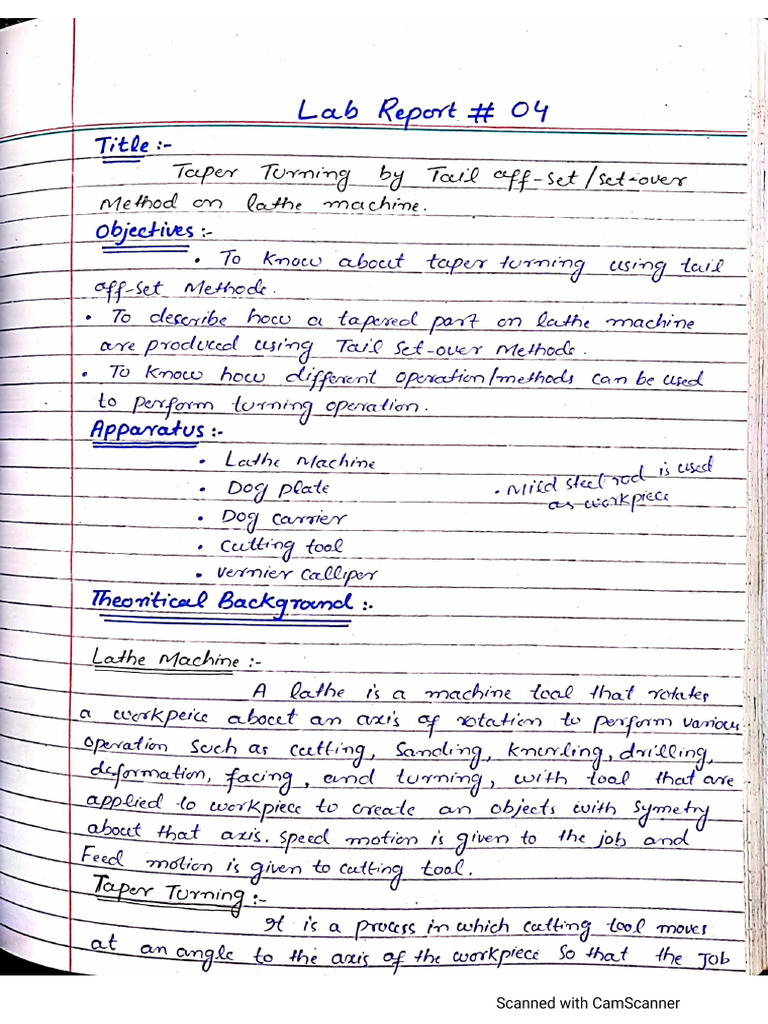 Lab Report # 04
Title :-
Taper Turning by Tail off-set/set-over
Method on lathe machine.
Objectives :-
• To know about taper turning using tail
off-set Methode.
• To describe how a tapered part on lathe machine
are produced using Tail Set-over Methode.
• To know how different operation/methods can be used
to perform turning operation.
Apparatus :-
• Lathe Machine
• Dog plate
• Dog carrier
• Cutting tool
• Vernier calliper
• Mild steel rod is used
as workpiece
Theoritical Background :-
Lathe Machine :-
A lathe is a machine tool that rotates
a workpeice about an axis of rotation to perform various
operation such as cutting, Sanding, knurling, drilling,
deformation, facing, and turning, with tool that are
applied to workpiece to create an objects with symetry
about that axis. Speed motion is given to the job and
Feed motion is given to cutting tool.
Taper Turning :-
It is a process in which cutting tool moves
at an angle to the axis of the workpiece so that the job
Scanned with CamScanner